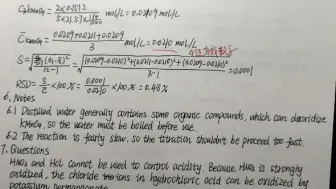 C KMnO4 = 2×0.1572 / 5×21.57× 1/1000 mol/L = 0.02109 mol/L
C̄ KMnO4 = 0.0209+0.0211+0.0209 / 3 mol/L = 0.0210 mol/L
S = = √ (0.0209-0.0210)²+(0.0211-0.0210)²+(0.0209-0.0210)² / 3-1 = 0.0001
RSD = S/C̄ ×100% = 0.0001/0.0210 ×100% = 0.48%
6. Notes
6.1 Distilled water generally contains some organic compounds, which can deoxidize
KMnO4, so the water must be boiled before use.
6.2 The reaction is fairly slow. so the titration shouldn't be proceed too fast.
7. Questions
HNO3 and Hcl cannot be used to control acidity. Because HNO3 is strongly
oxidized, the chloride ions in hydrochloric acid can be oxidized by
potassium permanganate